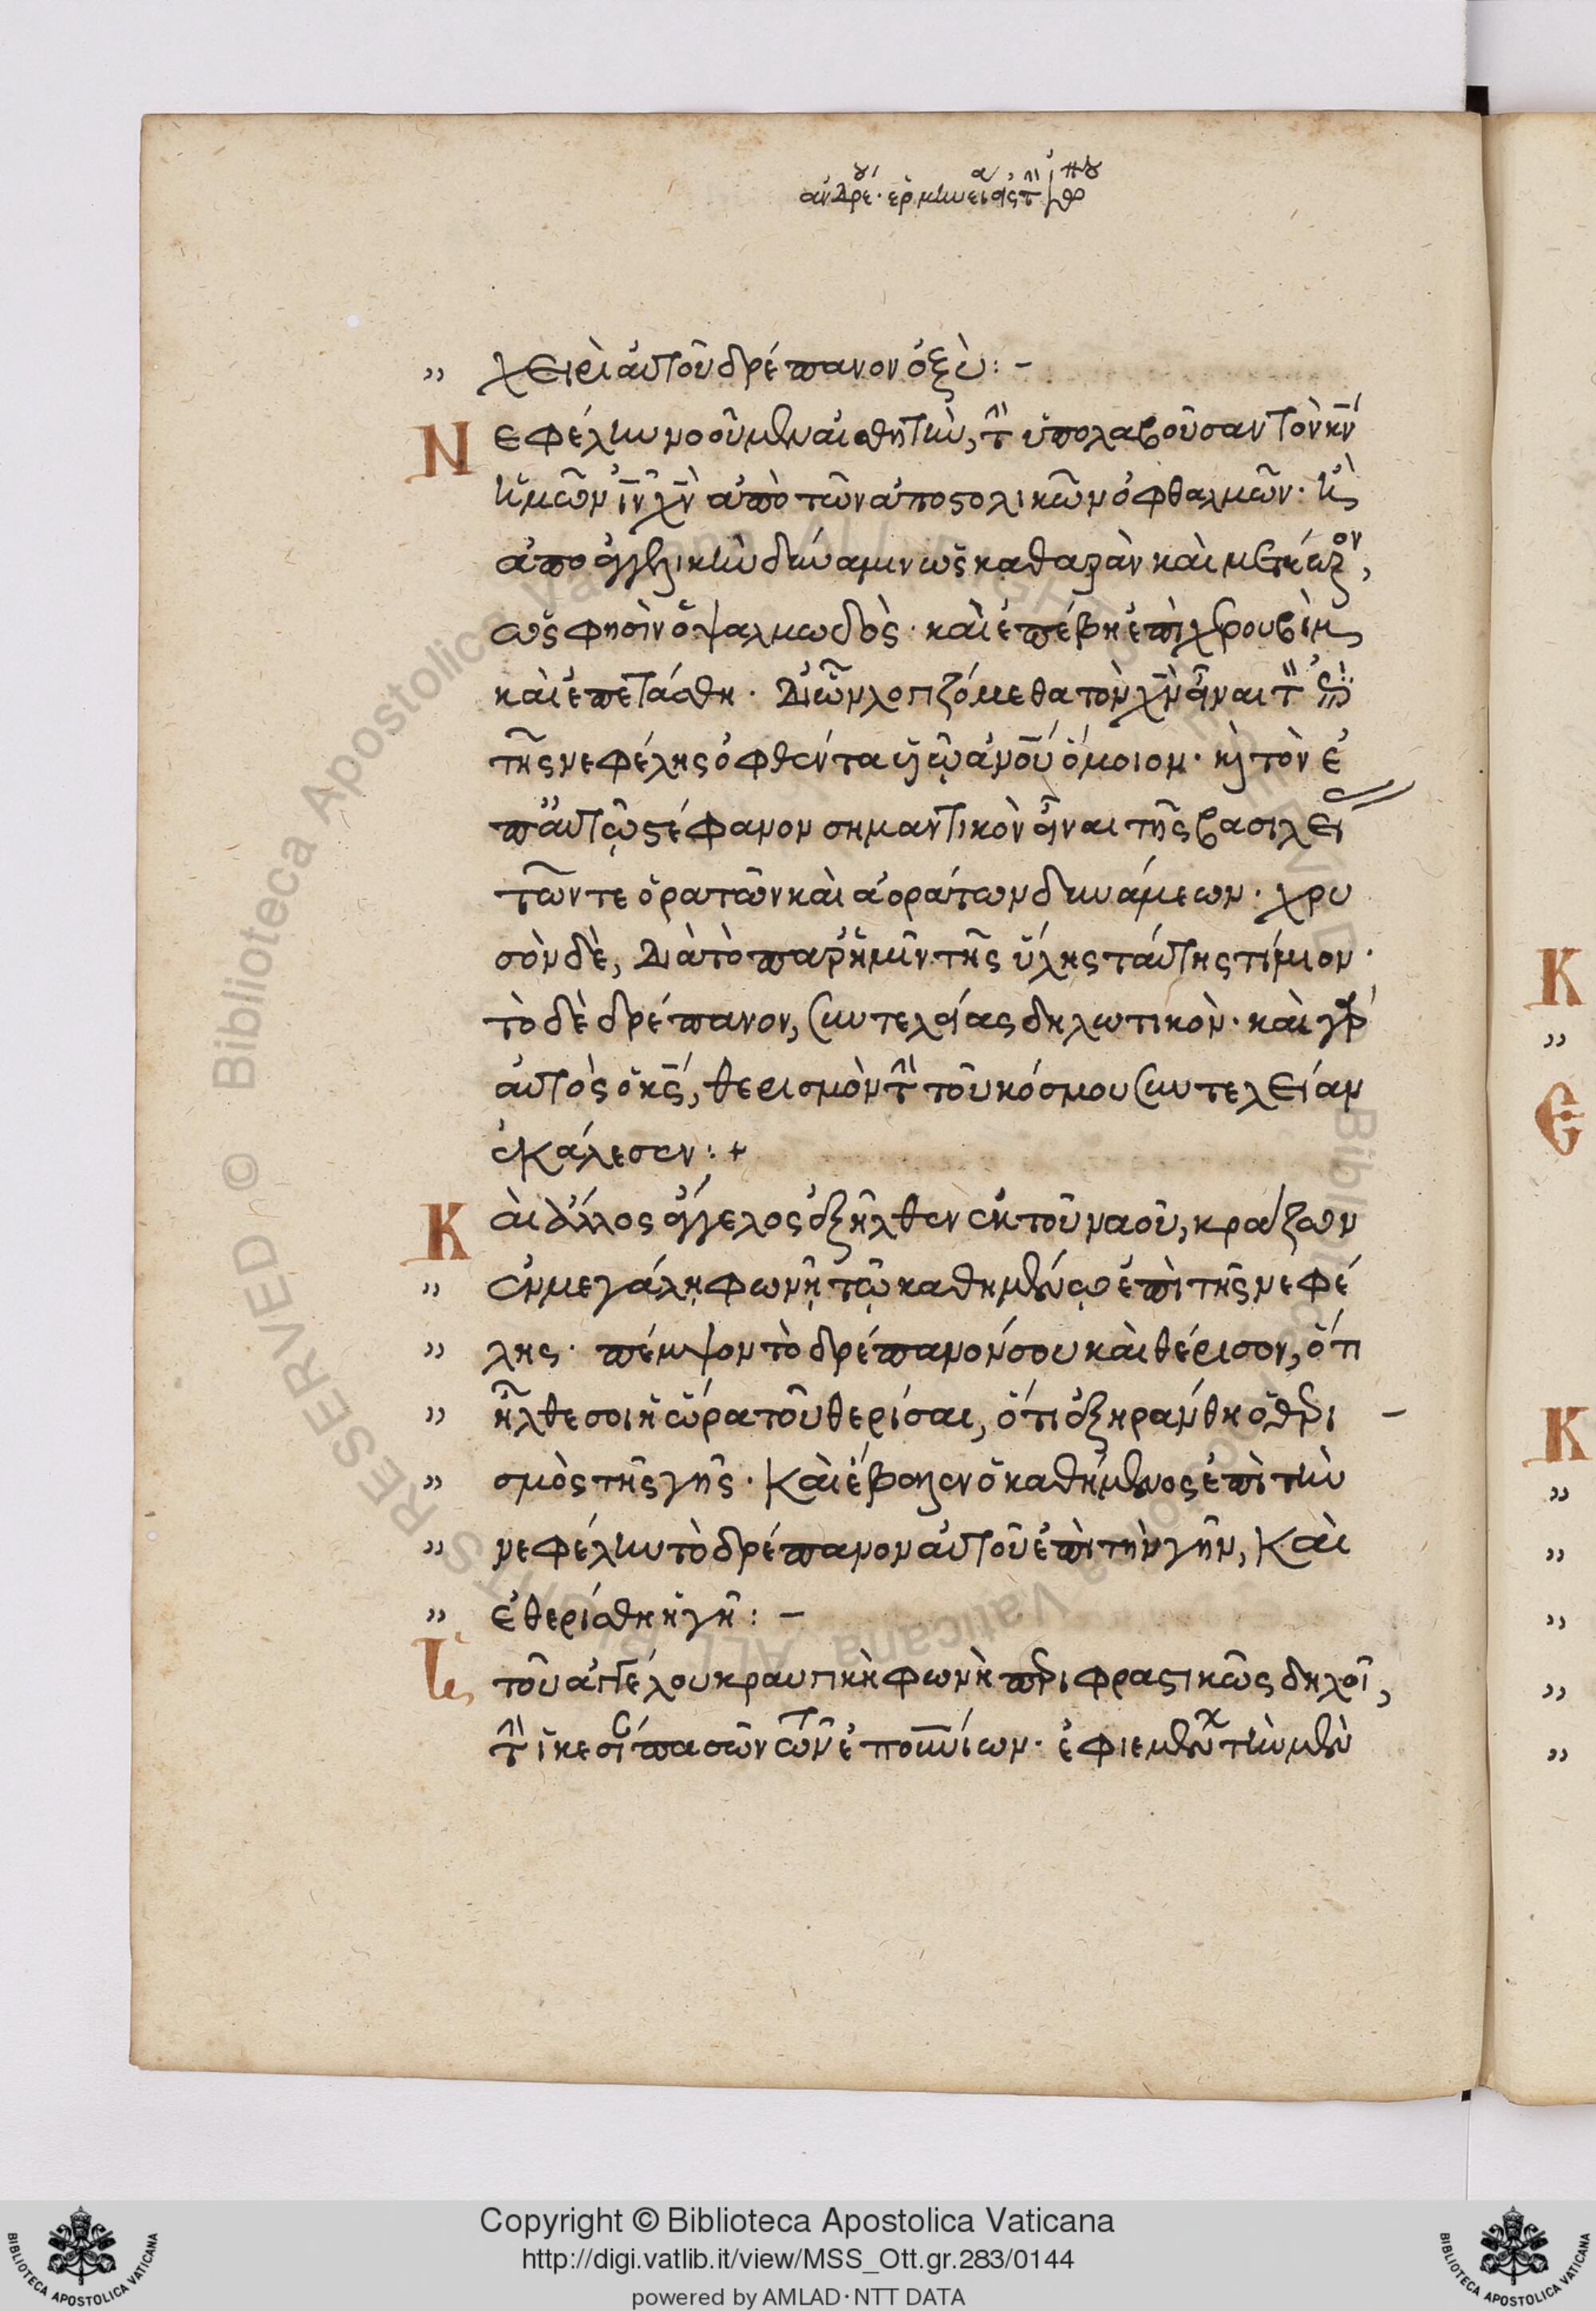 χειρὶ αὐτοῦ δρέπανον ὀξὺ: -
Νεφέλην νοοῦμεν αἰσθητὴν, τὴν ὑπολαβοῦσαν τὸν κν
ἡμῶν ιν χν ἀπὸ τῶν ἀποστολικῶν ὀφθαλμῶν· ἢ
ἀγγελικὴν δύναμιν ὡς καθαρὰν καὶ μετέωρον,
ὡς φησὶν ὁ ψαλμωδὸς· καὶ ἐπέβη ἐπὶ χερουβὶμ
καὶ ἐπετάσθη. Δι ὧν λογιζόμεθα τὸν χν εἶναι τὸν
τῆς νεφέλης ὀφθέντα υἱῷ ανου ὅμοιον· καὶ τὸν ἐ
π αὐτῷ στέφανον σημαντικὸν εἶναι τῆς βασιλεί
τῶν τε ὁρατῶν καὶ ἀοράτων δυνάμεων· χρυ
σὸν δὲ, διὰ τὸ παρ ἡμῖν τῆς ὕλης ταύτης τίμιον·
τὸ δὲ δρέπανον, συντελείας δηλωτικὸν· καὶ γὰρ
αὐτὸς ὁ κς, θερισμὸν τὴν τοῦ κόσμου συντελείαν
ἐκάλεσεν: +
Καὶ ἄλλος ἄγγελος ἐξῆλθεν ἐκ τοῦ ναοῦ, κράζων
ἐν μεγάλῃ φωνῇ τῷ καθημένῳ ἐπὶ τῆς νεφέ
λης· πέμψον τὸ δρέπανόν σου καὶ θέρισον, ὅτι
ἦλθε σοι ἡ ὥρα τοῦ θερίσαι, ὅτι ἐξηράνθη ὁ θερι
σμὸς τῆς γῆς· Καὶ ἔβαλεν ὁ καθήμενος ἐπὶ τὴν
νεφέλην τὸ δρέπανον αὐτοῦ ἐπὶ τὴν γῆν, Καὶ
ἐθερίσθη ἡ γῆ: -
τοῦ ἀγγέλου κραυγικὴ φωνὴ περιφραστικῶς δηλοῖ,
τὴν ἱκεσίαν πασῶν τῶν ἐπουνίων· ἐφιεμένων τὴν μὲν
Copyright © Biblioteca Apostolica Vaticana
http://digi.vatlib.it/view/MSS_Ott.gr.283/0144
powered by AMLAD · NTT DATA
BIBLIOTECA APOSTOLICA VATICANA
BIBLIOTECA APOSTOLICA VATICANA